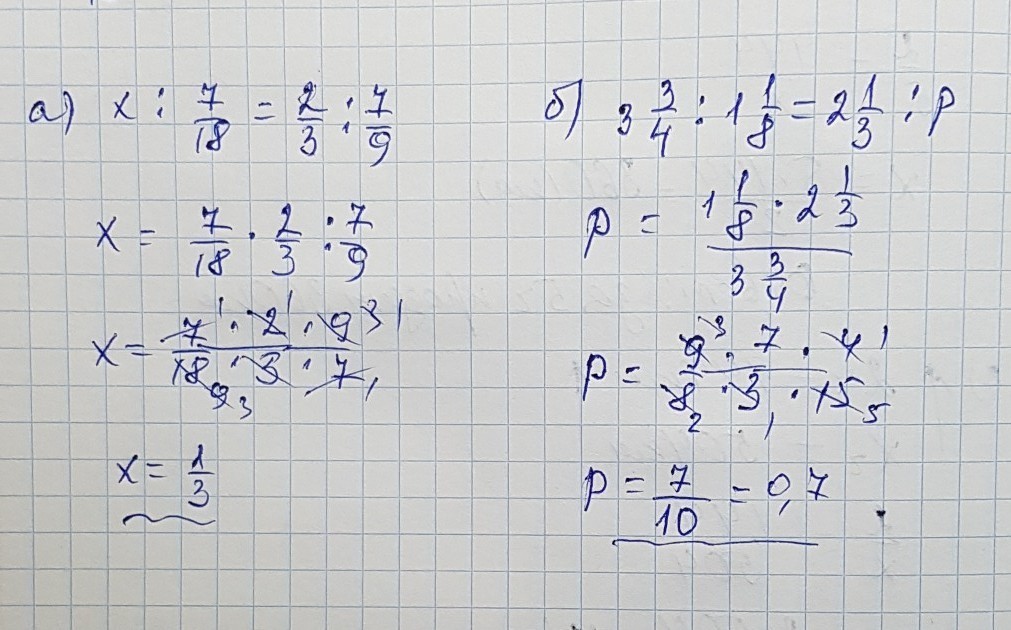 а) x : 7/18 = 2/3 : 7/9
x = 7/18 · 2/3 : 7/9
x = 7 1 · 2 1 · 9 3 1 / 18 9 3 · 3 · 7 1
x = 1/3
б) 3 3/4 : 1 1/8 = 2 1/3 : p
p = 1 1/8 · 2 1/3 / 3 3/4
p = 9 3 · 7 · 4 1 / 8 2 · 3 1 · 15 5
p = 7/10 = 0,7